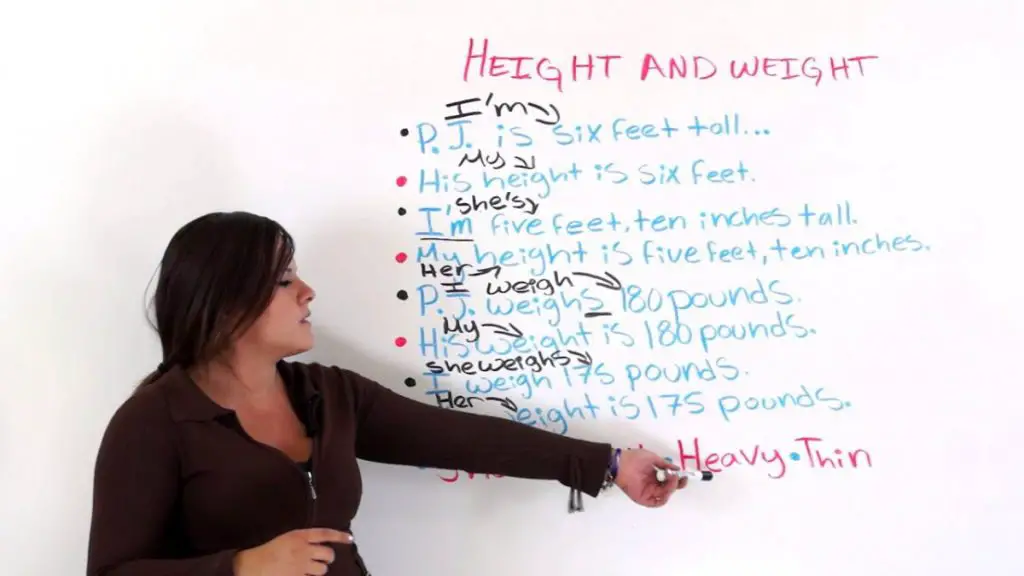 HEIGHT AND WEIGHT
I'm
• P.J. is six feet tall...
My
• His height is six feet.
she's
• I'm five feet, ten inches tall.
• My height is five feet, ten inches.
Her
I weigh
• P.J. weighs 180 pounds.
My
• His weight is 180 pounds.
she weighs
• I weigh 175 pounds.
Her
eight is 175 pounds.
• Heavy • Thin